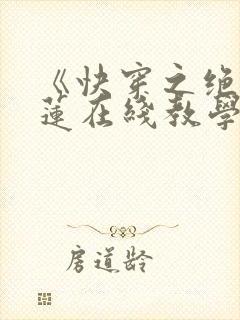 《快穿之绝
蓮在綫教學
房道龄